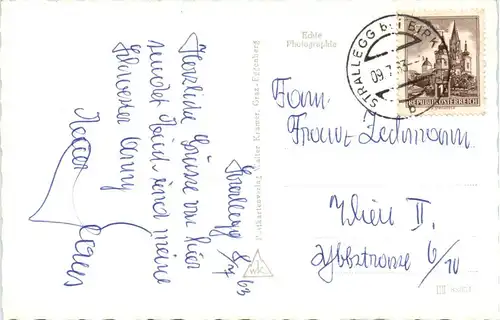 Strallegg 8/7 63
Herzliche Grüsse von hier
sendet Euch und meine
Schwester Fanny
Echte
Photographie
Postkartenverlag Walter Kramer, Graz-Eggenberg
STRALLEGG b. BIRK
09.7.63
REPUBLIK ÖSTERREICH
Fam.
Franz Zechmann
Wien II.
Ybbsstrasse 6/10